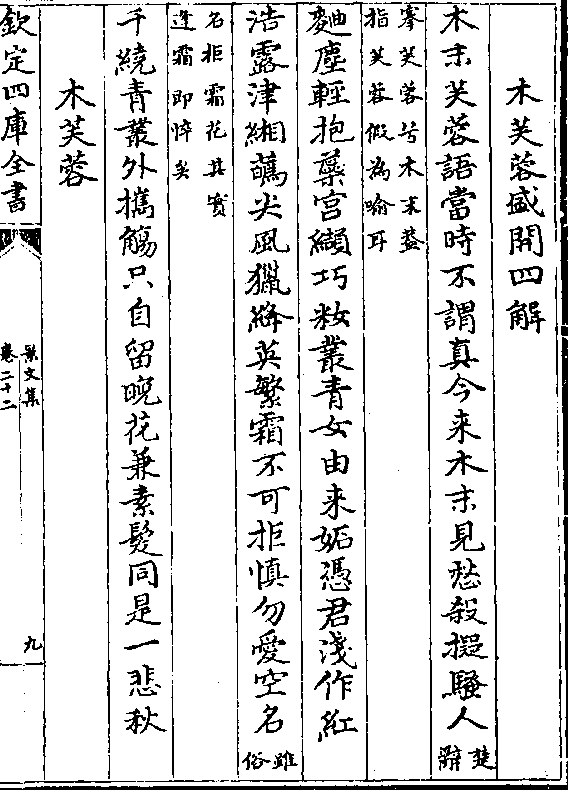 木芙蓉盛開四解
木末芙蓉語當時不謂真今来木末見愁殺擬騷人楚辭
搴芙蓉兮木末葢
指芙蓉假為喻耳
麴塵輕抱蘂宫纈巧粧叢青女由来妬憑君淺作紅
浩露津緗蘤尖風獵絳英繁霜不可拒慎勿愛空名雖俗
名拒霜花其實
逢霜即悴矣
千繞青叢外攜觴只自留晩花兼素髮同是一悲秋
木芙蓉
欽定四庫全書
景文集
卷二十二
九